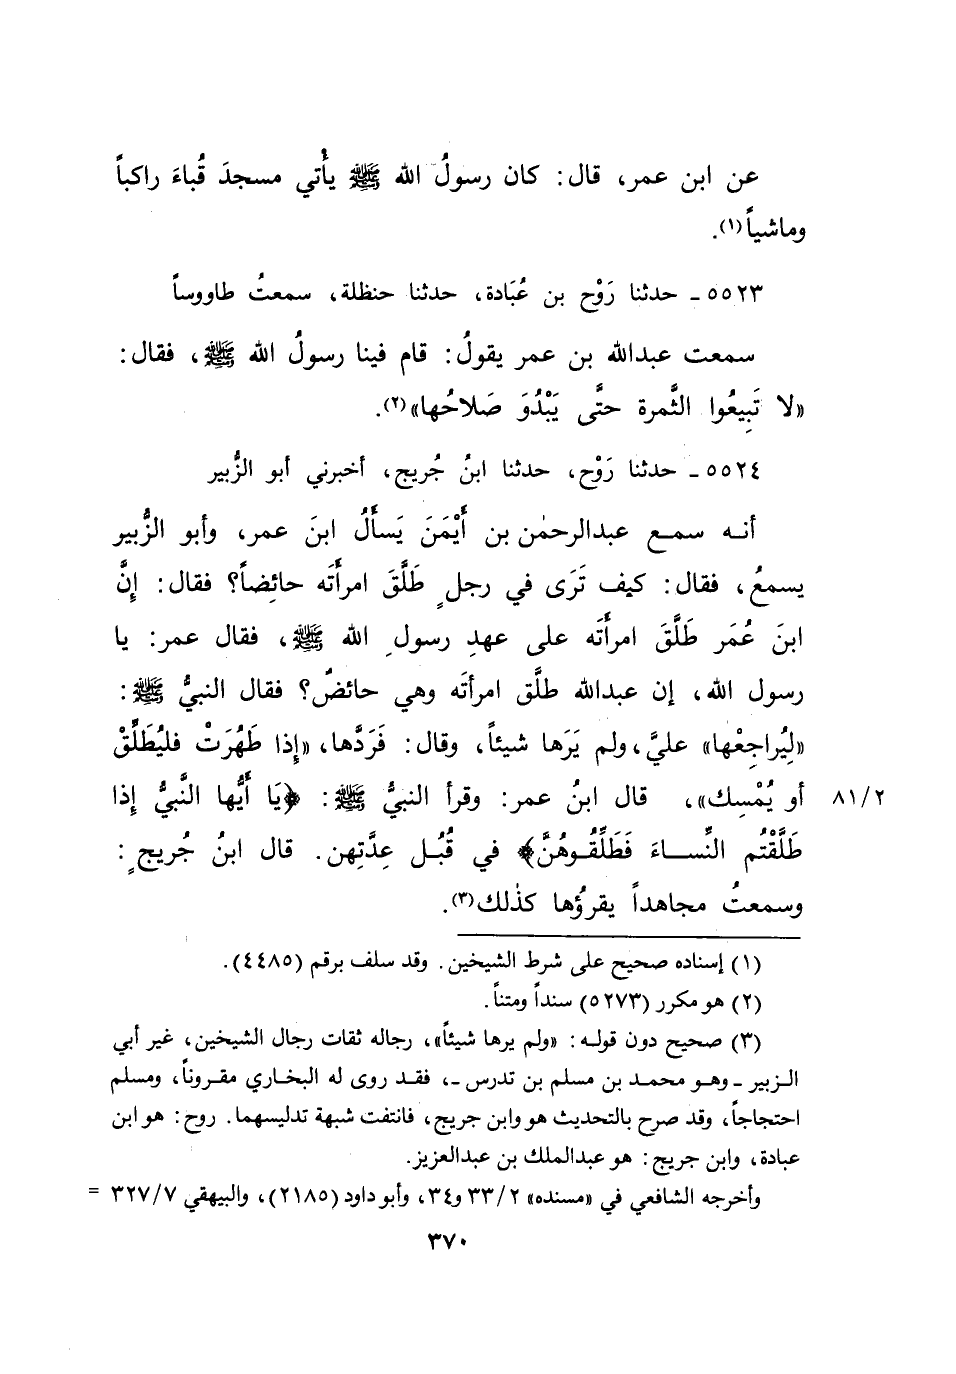 عن ابن عمر، قال: كان رسولُ الله ﷺ يأتي مسجدَ قُباءَ راكباً
وماشياً(١).
٥٥٢٣ ـ حدثنا رَوْح بن عُبَادة، حدثنا حنظلة، سمعتُ طاووساً
سمعت عبدالله بن عمر يقولُ: قام فينا رسولُ الله ﷺ، فقال:
«لا تَبِيعُوا الثَّمرة حتَّى يَبْدُوَ صَلاحُها»(٢).
٥٥٢٤ ـ حدثنا رَوْح، حدثنا ابنُ جُريج، أخبرني أبو الزُّبير
أنه سمع عبدالرحمٰن بن أَيْمَنَ يَسأَلُ ابنَ عمر، وأبو الزُّبير
يسمعُ، فقال: كيف تَرَى في رجلٍ طَلَّقَ امرأَته حائِضاً؟ فقال: إنَّ
ابنَ عُمَر طَلَّقَ امرأَته على عهدِ رسولِ الله ﷺ، فقال عمر: يا
رسول الله، إن عبدالله طلَّق امرأتَه وهي حائضٌ؟ فقال النبيُّ ﷺ:
«لِيُراجِعْها» عليَّ، ولم يَرَها شيئاً، وقال: فَرَدَّها، «إذا طَهُرَتْ فليُطَلِّقْ
أو يُمْسِك»، قال ابنُ عمر: وقرأ النبيُّ ﷺ: ﴿يَا أَيُّها النَّبيُّ إذا ٨١/٢
طَلَّقْتُم النِّساءَ فَطَلِّقُوهُنَّ﴾ في قُبُل عِدَّتِهن. قال ابنُ جُريجٍ:
وسمعتُ مجاهداً يقرؤُها كذٰلك(٣).
(١) إسناده صحيح على شرط الشيخين. وقد سلف برقم (٤٤٨٥).
(٢) هو مكرر (٥٢٧٣) سنداً ومتناً.
(٣) صحيح دون قوله: «ولم يرها شيئاً»، رجاله ثقات رجال الشيخين، غير أبي
الزبير ـ وهو محمد بن مسلم بن تدرس ـ، فقد روى له البخاري مقروناً، ومسلم
احتجاجاً، وقد صرح بالتحديث هو وابن جريج، فانتفت شبهة تدليسهما. روح: هو ابن
عبادة، وابن جريج: هو عبدالملك بن عبدالعزيز.
وأخرجه الشافعي في «مسنده» ٣٣/٢ و٣٤، وأبو داود (٢١٨٥)، والبيهقي ٣٢٧/٧ =
٣٧٠